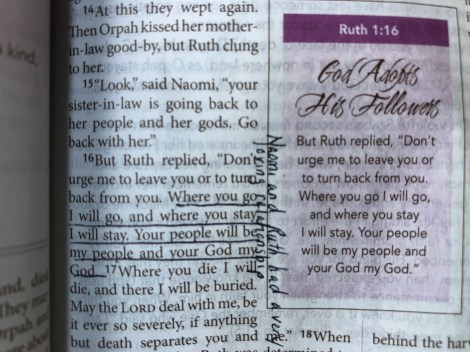 14At this they wept again.
Then Orpah kissed her mother-
in-law good-by, but Ruth clung
to her.
15"Look," said Naomi, "your
sister-in-law is going back to
her people and her gods. Go
back with her."
16But Ruth replied, "Don't
urge me to leave you or to turn
back from you. Where you go
I will go, and where you stay
I will stay. Your people will be
my people and your God my
God. 17Where you die I will
die, and there I will be buried.
May the LORD deal with me, be
it ever so severely, if anything
but death separates you and me." 18When
Naomi and Ruth had a very
loving relationship
Ruth 1:16
God Adopts
His Followers
But Ruth replied, "Don't
urge me to leave you or
to turn back from you.
Where you go I will go,
and where you stay
I will stay. Your people
will be my people and
your God my God."
behind the har
kind,
and, died
They mar
Orpah and